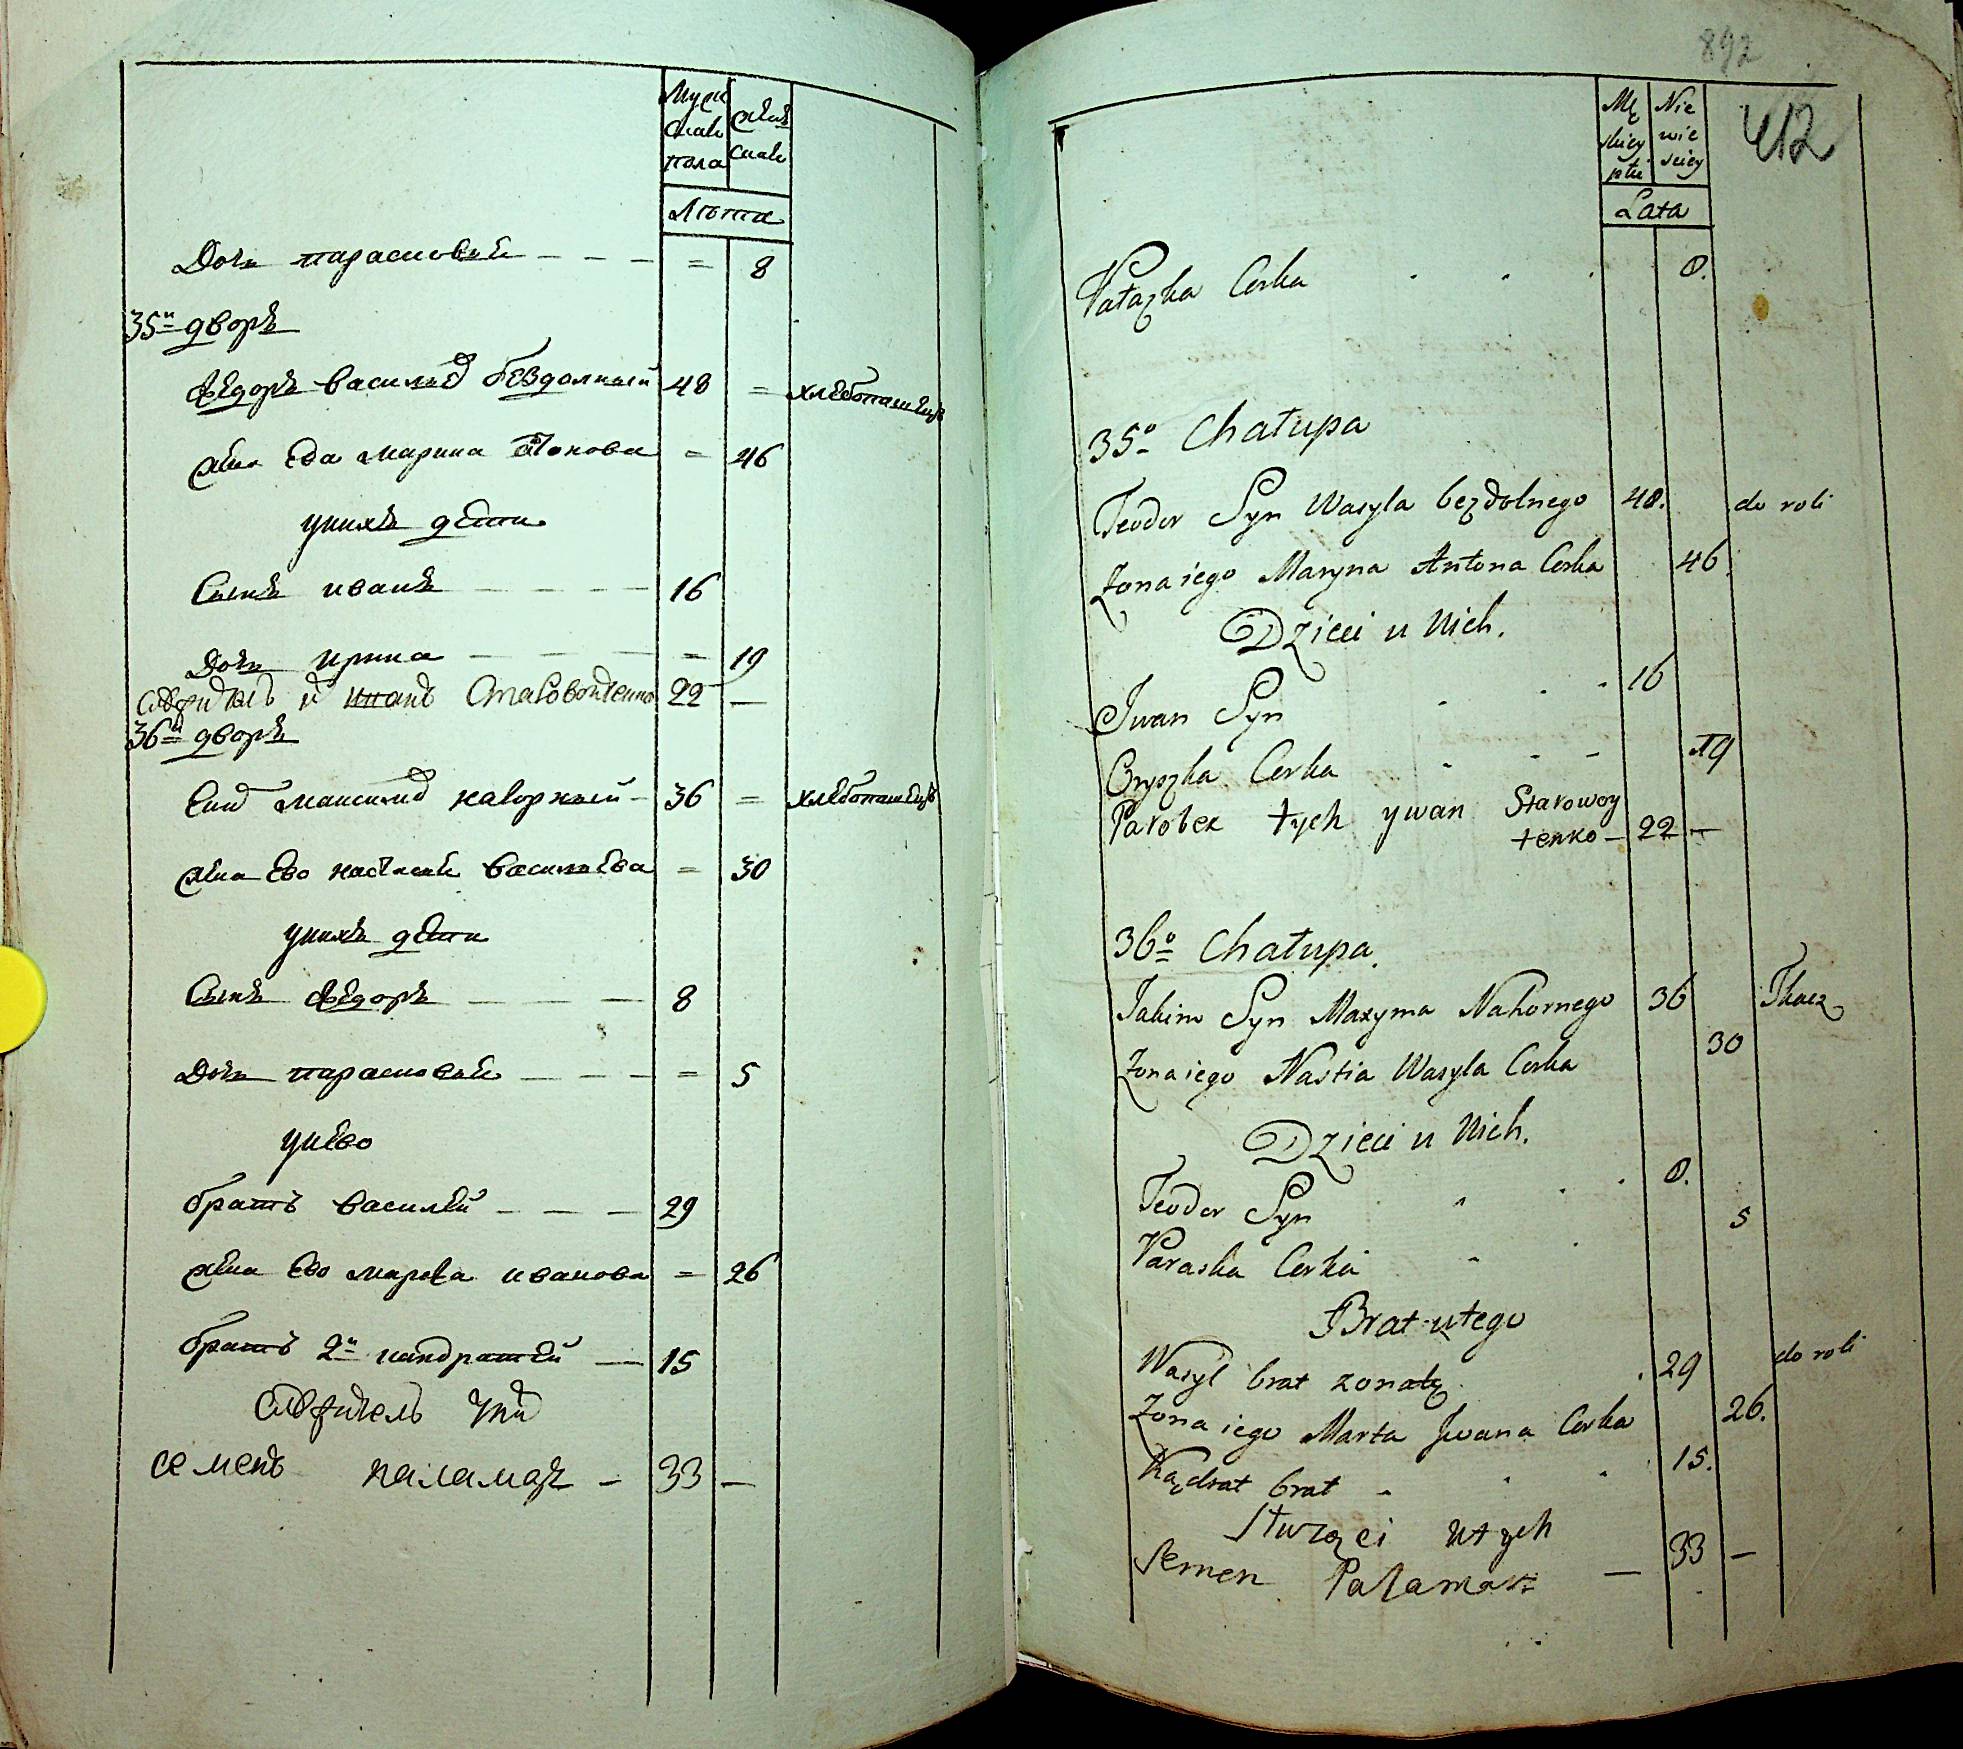 Мужска пола
женска
Лѣта
Дочь парасковей = 8
35й дворъ
Ѳедоръ василиев бездолный 48 = хлебопашецъ
жена ево марина антонова = 46
уних дети
Сынъ иванъ 16
Дочь ирина = 19
служитель их иванъ Старовойтенко 22 —
36й дворъ
Еким максимов нагорный 36 = хлебопашецъ
жена ево настасия василиева = 30
уних дети
Сынъ ѳедоръ 8
Дочь парасковей = 5
унево
братъ василей 29
жена ево марфа иванова = 26
братъ 2й кандратей 15
служитель
семенъ паламар 33 —
892
412
Męskiey płci
Niewiesciey
Lata
Parazka Corka 8.
35º Chałupa
Teodor Syn Wasyla bezdolnego 48. do roli
Zona iego Maryna Antona Corka 46.
Dzieci u Nich.
Iwan Syn 16
Oryszka Corka 19
Parobek tych ywan Starowoy
tenko — 22 —
36º Chałupa
Iakim Syn Maxyma Nahornego 36 Tkacz
Zona iego Nastia Wasyla Corka 30
Dzieci u Nich.
Teodor Syn 8.
Paraska Corka 5
Brat u tego
Wasyl brat zonaty 29 do roli
Zona iego Marta Iwana Corka 26.
Kądrat brat 15.
Służący u tych
Semen Pałamar — 33 —